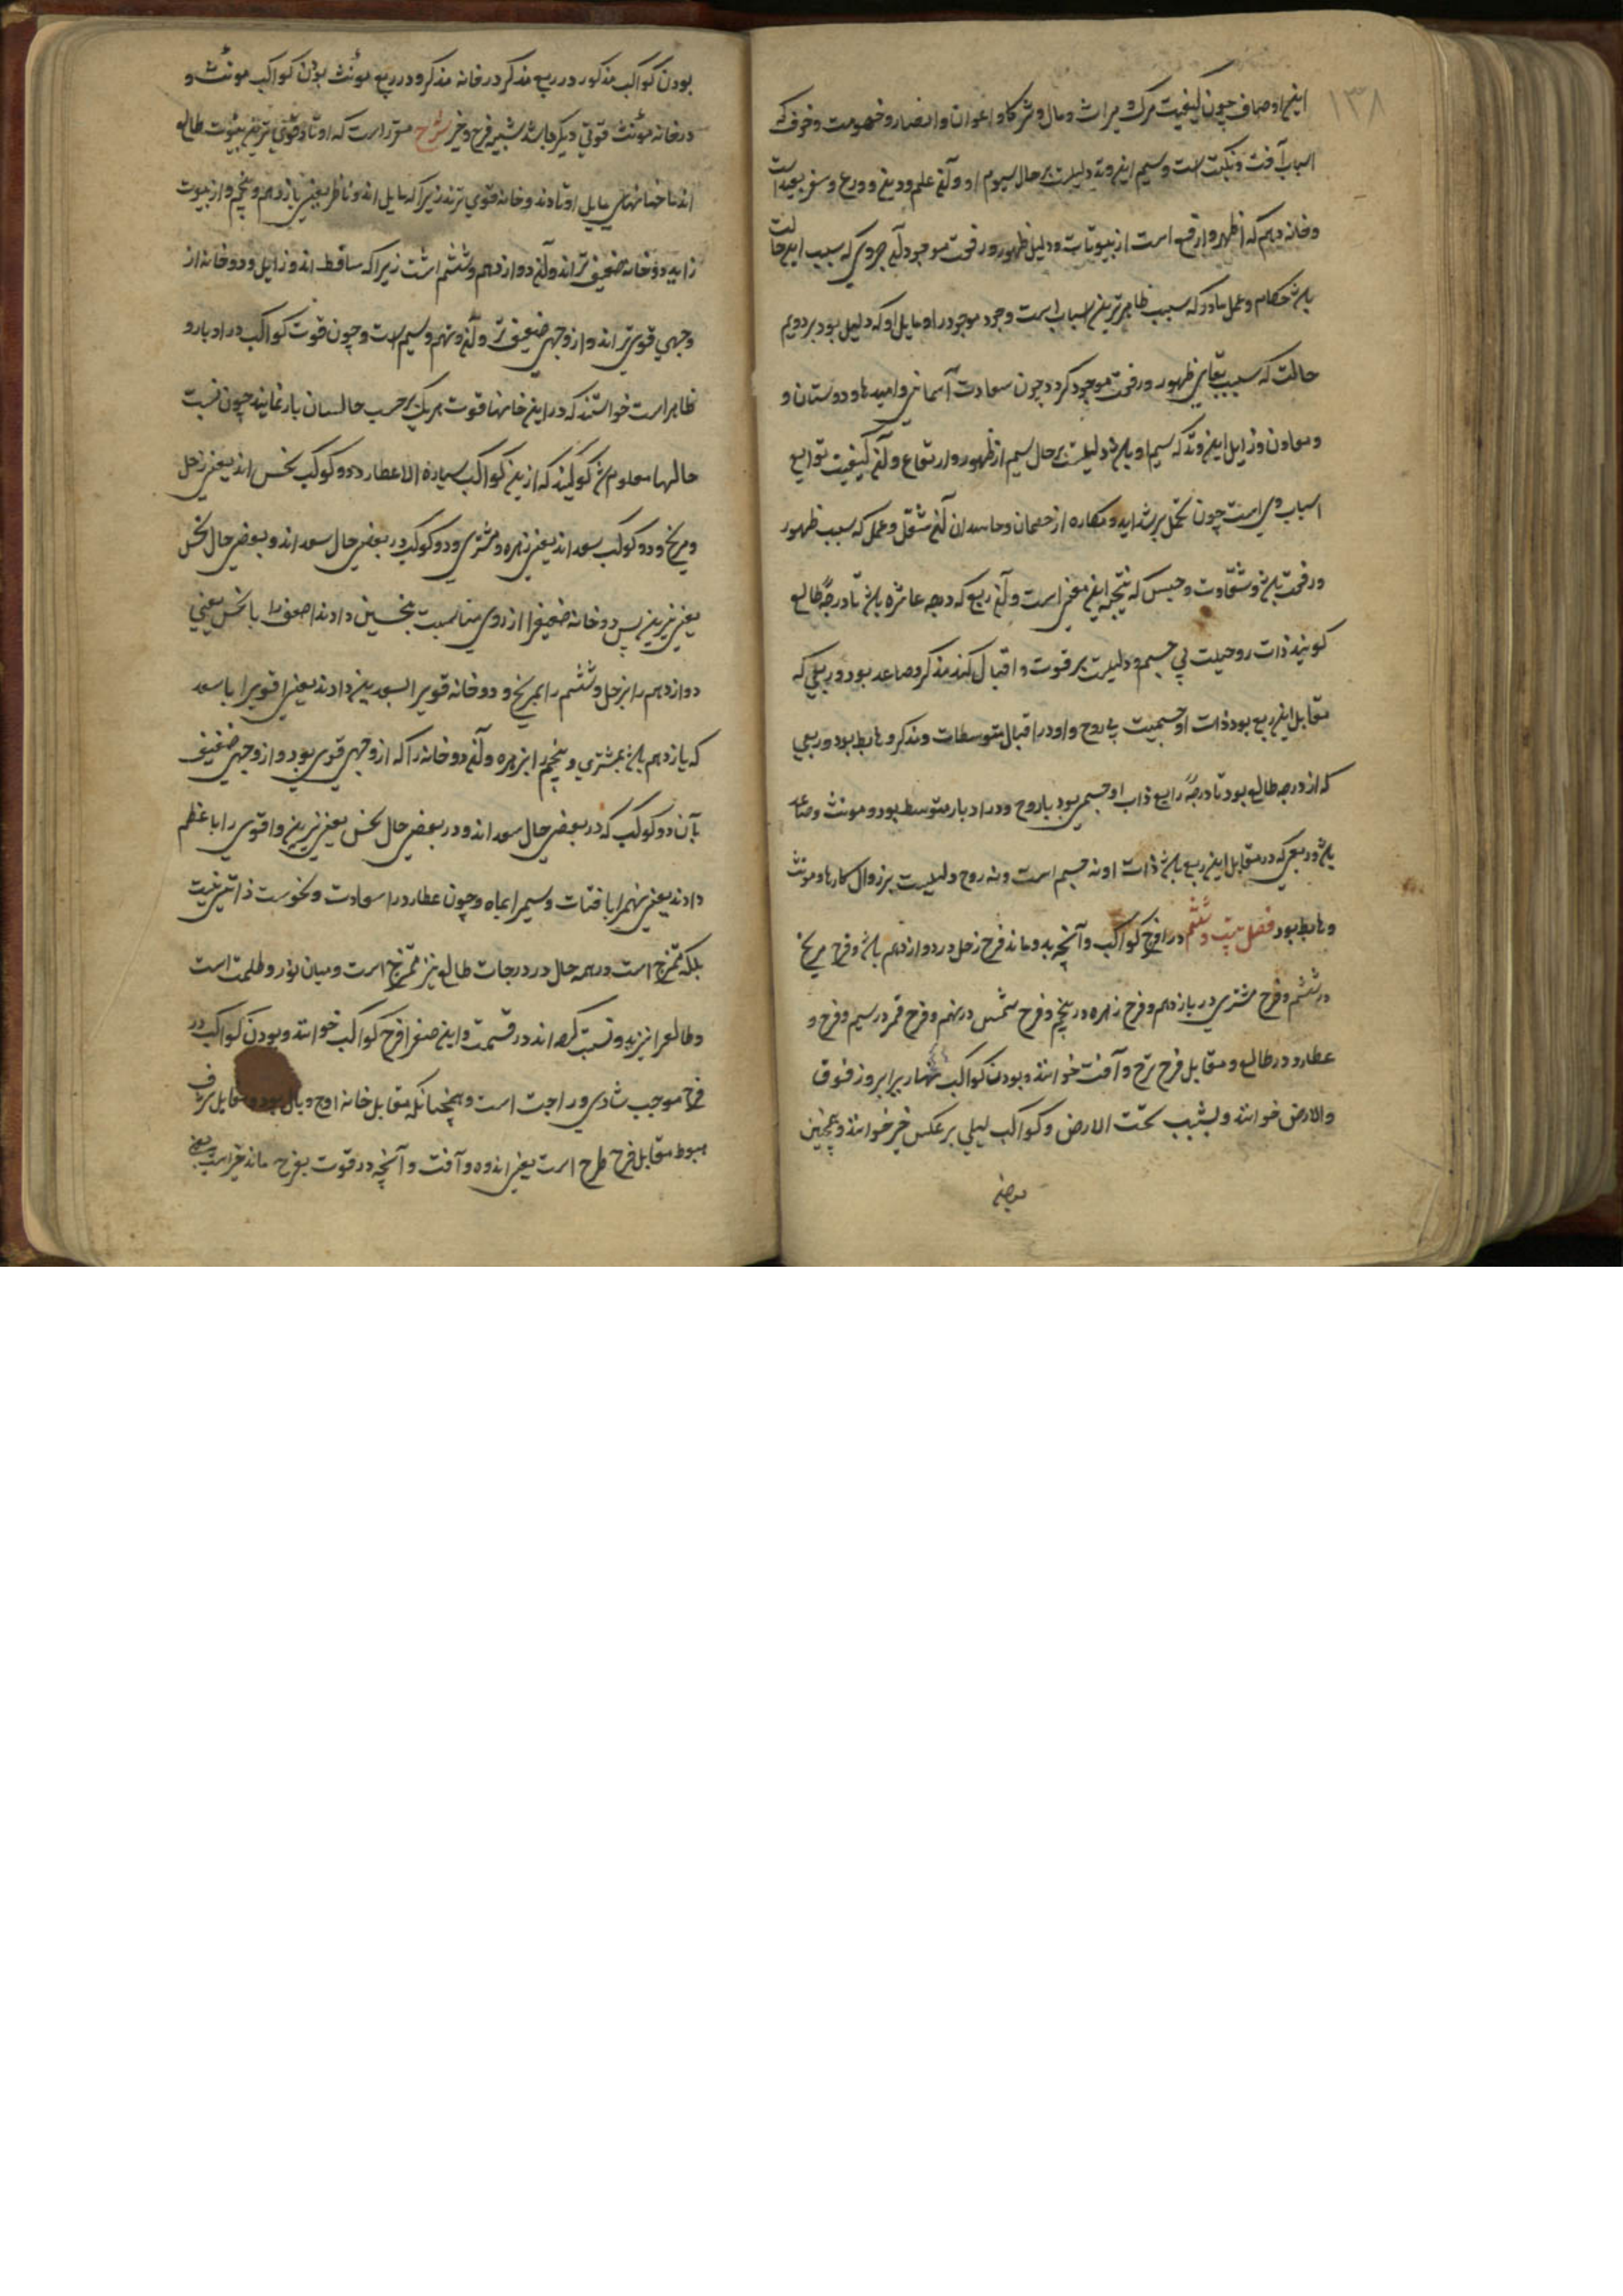 ۱۳۸
این اوصاف چون کیفیت مرک و میراث و مال و شرکا و اعوان و انصار و خصومت و خوف که
اسباب آفت و نکبت است وسیم این وتد دلیلست بر حال سیوم او و آن علم و دین و ورع و سفر بعید است
وخانه دهم که اظهر وارفع است از بیوتات و دلیل ظهور ورفعت موجود آن جروی که سبب این حالت
باشد حکام وعمل مادر که سبب ظاهرترین اسباب است وجود موجود را و مایل او که دلیل بود بر دویم
حالت که سبب بقای ظهور ورفعت موجود کردد چون سعادت آسمانی وامیدها و دوستان و
ومعاون وزایل این وتد که سیم او باشد دلیلست بر حال سیم از ظهور وارتفاع و آن کیفیت توابع
اسباب وی است چون تحمل بر شداید و مکاره از خصمان وحاسدان آن شغل وعمل که سبب ظهور
ورفعت باشد وشقاوت وحبس که نتیجه این معنی است و آن ربع که درجه عاشره باشد تا درجهٔ طالع
کویند ذات روحیت بی جسم و دلیلست بر قوت و اقبال کند مذکر و صاعد بود و ربعی که
مقابل این ربع بود ذات او جسمیت بی روح واو در اقبال متوسطات ومذکر و هابط بود و ربعی
که از درجه طالع بود تا درجهٔ رابع ذات او جسمی بود باروح ودر ادبار متوسط بود و مونث وصاعد
باشد وربعی که در مقابل این ربع باشد ذات او نه جسم است ونه روح ودلیلست بر زوال کارها ومونث
وهابط بود فصل بیت وششم در افرح کواکب وآنچه بدو ماند فرح زحل در دوازدهم باشد وفرح مریخ
در ششم وفرح مشتری در یازدهم وفرح زهره در پنجم وفرح شمس در نهم وفرح قمر در سیم وفرح و
عطارد در طالع ومقابل فرح ترح وآفت خوانند وبودن کواکب نهاریرا بروز فوق
والارض خوانند وبشب تحت الارض وکواکب لیلی بر عکس خیر خوانند وهمچنین
بودن کواکب مذکور در ربع مذکر در خانه مذکر ودر ربع مونث بودن کواکب مونث و
در خانه مؤنث قوتی دیکر باشد شبیه فرح وخیر شرح مقرر است که اوتاد قوی ترین بیوت طالع
اند اما خانهای مایل اوتادند وخانه قوی ترند زیرا که مایل اند وناظر یعنی یازدهم وپنجم واز بیوت
زایده دو خانه ضعیف تر اند و آن دوازدهم وششم است زیرا که ساقط اند وزایل ودو خانه از
وجهی قوی تر اند واز وجهی ضعیف تر و آن نهم وسیم است وچون قوت کواکب در ادبار و
ظاهر است خواستند که در این خانها قوت هریک بر حسب حالسان باز نمایند چون نسبت
حالها معلوم شد کویند که از ین کواکب سیاره الا عطارد دو کوکب نحس اند یعنی زحل
ومریخ ودو کوکب سعد اند یعنی زهره ومشتری ودو کوکب در بعضی حال سعد اند وبعضی حال نحس
یعنی نیرین پس دو خانه ضعیفرا از روی مناسبت بنحسین دادند اضعف را با نحس یعنی
دوازدهم را بزحل وششم را بمریخ ودو خانه قویرا بسعدین دادند یعنی اقویرا با سعد
که یازدهم باشد بمشتری وپنجم را بزهره و آن دو خانه را که از وجهی قوی بود واز وجهی ضعیف
بآن دو کوکب که در بعضی حال سعد اند ودر بعضی حال نحس یعنی نیرین واقوی را با عظم
دادند یعنی نهم را بافتاب وسیم را بماه وچون عطارد را سعادت ونحوست ذاتی نیست
بلکه ممتزج است در همه حال در درجات طالع نیز ممتزج است ومیان نور وظلمت است
وطالع را نیز بدو نسبت کرده اند در قسمت واین معنی را فرح کواکب خوانند وبودن کواکب در
فرح موجب شادی وراحت است وهمچنانکه مقابل خانه اوج وبال بود ومقابل شرف
هبوط مقابل فرح طرح است یعنی اندوه وآفت وآنچه در قوت بفرح ماند خیر است یعنی